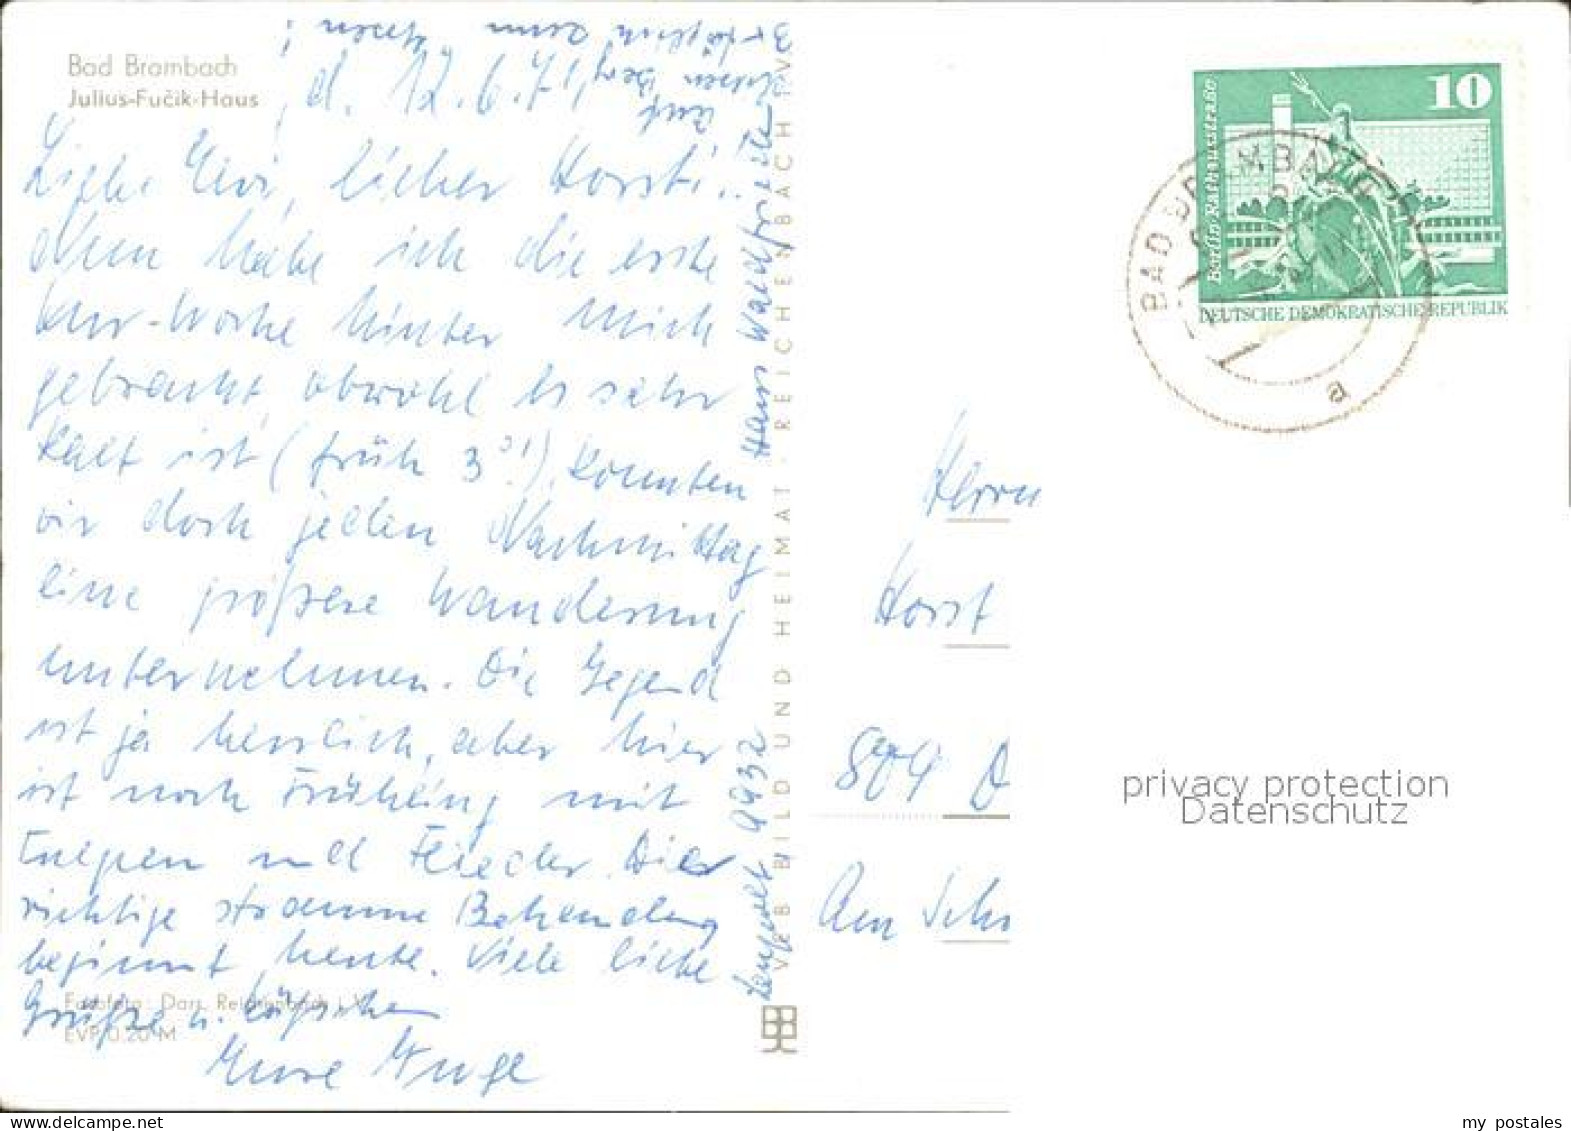 Bad Brambach
Julius-Fučik-Haus
d. 12.6.71
Liebe Evi, lieber Horsti..
Nun habe ich die erste
Kur-Woche hinter mich
gebracht, obwohl es sehr
kalt ist (früh 3°!). Konnten
wir doch jeden Nachmittag
eine größere Wanderung
unternehmen. Die Gegend
ist ja herrlich, aber hier
ist noch Frühling mit
Tulpen und Flieder. Die
richtige stramme Behandlung
beginnt heute. Viele liebe
Grüße u. Küßchen
Eure
Farbfoto: Darr, Reichenbach i. V.
EVP 0,20 M
9932
Haus Waldfriede
VEB BILD UND HEIMAT · REICHENBACH I. V.
10
Berlin, Rathausstraße
DEUTSCHE DEMOKRATISCHE REPUBLIK
BAD BRAMBACH
a
Herrn
Horst
Am Sch
privacy protection
Datenschutz
my postales